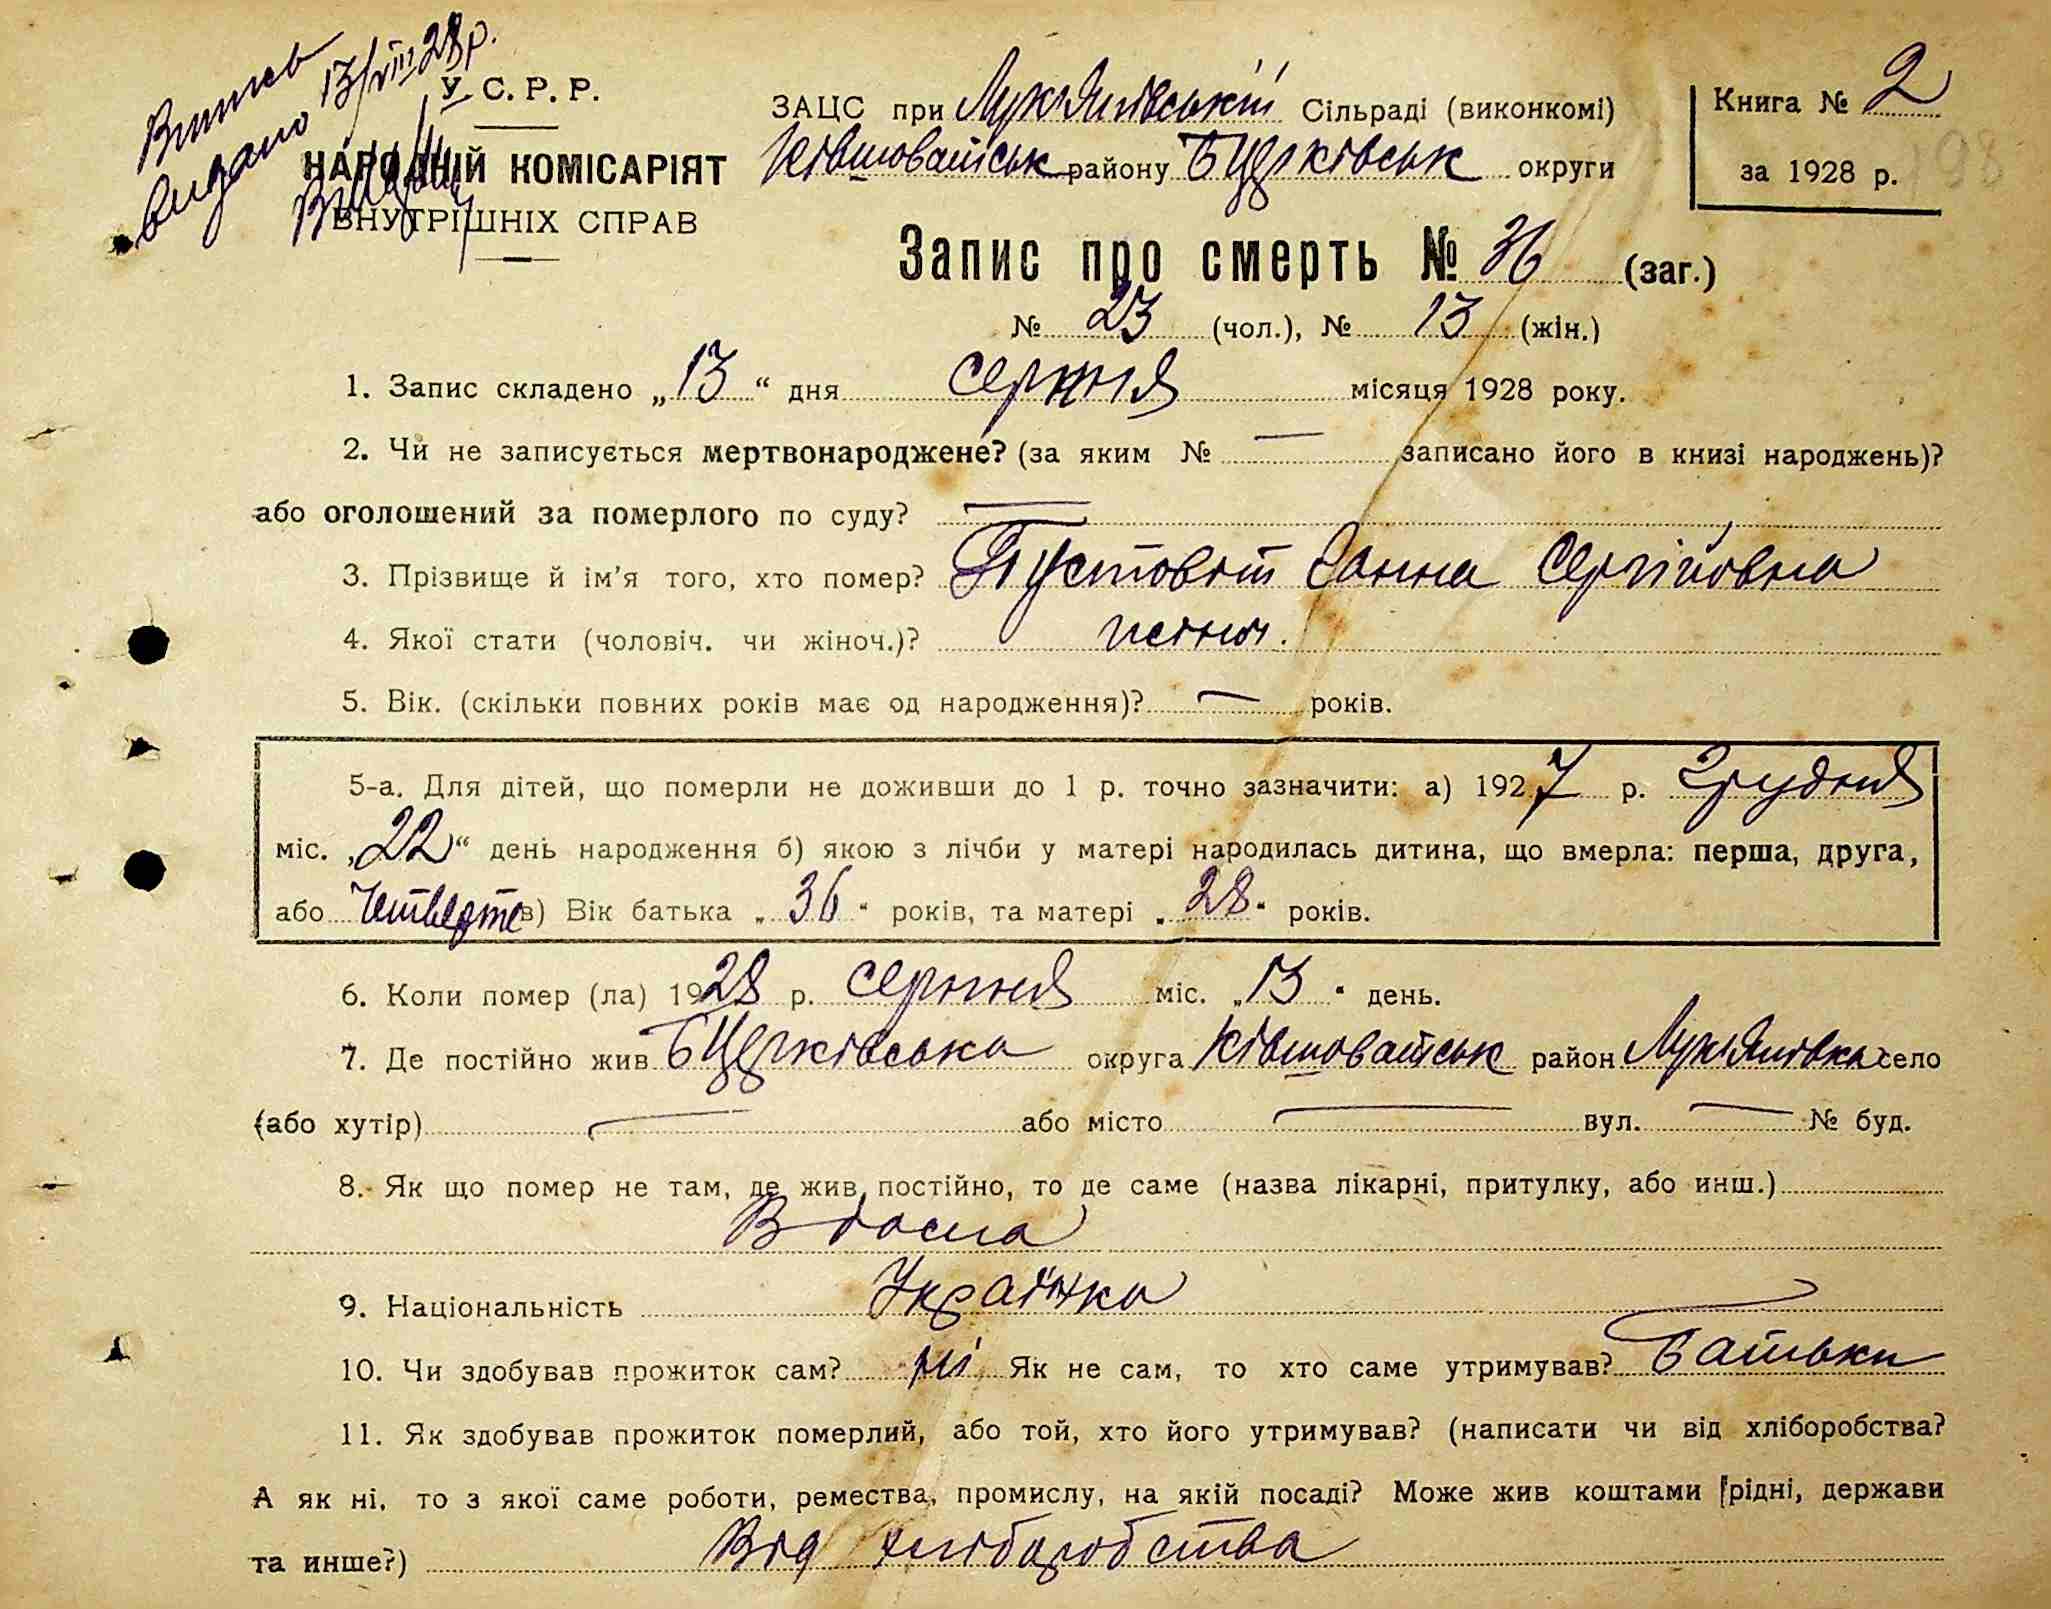 Витяг
видано 13/VIII 28 р.
У. С. Р. Р.
НАРОДНІЙ КОМІСАРІЯТ
ВНУТРІШНІХ СПРАВ
ЗАЦС при Лукʼянівській Сільраді (виконкомі)
Ківшоватськ району БЦерківськ округи
Книга № 2
за 1928 р.
198
Запис про смерть № 36 (заг.)
№ 23 (чол.), № 13 (жін.)
1. Запис складено „13“ дня серпня місяця 1928 року.
2. Чи не записується мертвонароджене? (за яким № — записано його в книзі народжень)?
або оголошений за померлого по суду? —
3. Прізвище й ім'я того, хто помер? Пустовіт Ганна Сергіївна
4. Якої стати (чоловіч. чи жіноч.)? жіноч.
5. Вік. (скільки повних років має од народження)? — років.
5-а. Для дітей, що померли не доживши до 1 р. точно зазначити: а) 1927 р. Грудня
міс. „22“ день народження б) якою з лічби у матері народилась дитина, що вмерла: перша, друга,
або Четверте в) Вік батька „36“ років, та матері „28“ років.
6. Коли помер (ла) 1928 р. серпня міс. „13“ день.
7. Де постійно жив БЦерківська округа Ківшоватськ район Лукʼянівка село
(або хутір) — або місто — вул. — № буд.
8. Як що помер не там, де жив постійно, то де саме (назва лікарні, притулку, або инш.)
Вдома
9. Національність Українка
10. Чи здобував прожиток сам? ні Як не сам, то хто саме утримував? Батьки
11. Як здобував прожиток померлий, або той, хто його утримував? (написати чи від хліборобства?
А як ні, то з якої саме роботи, ремества, промислу, на якій посаді? Може жив коштами рідні, держави
та инше?) Від хліборобства